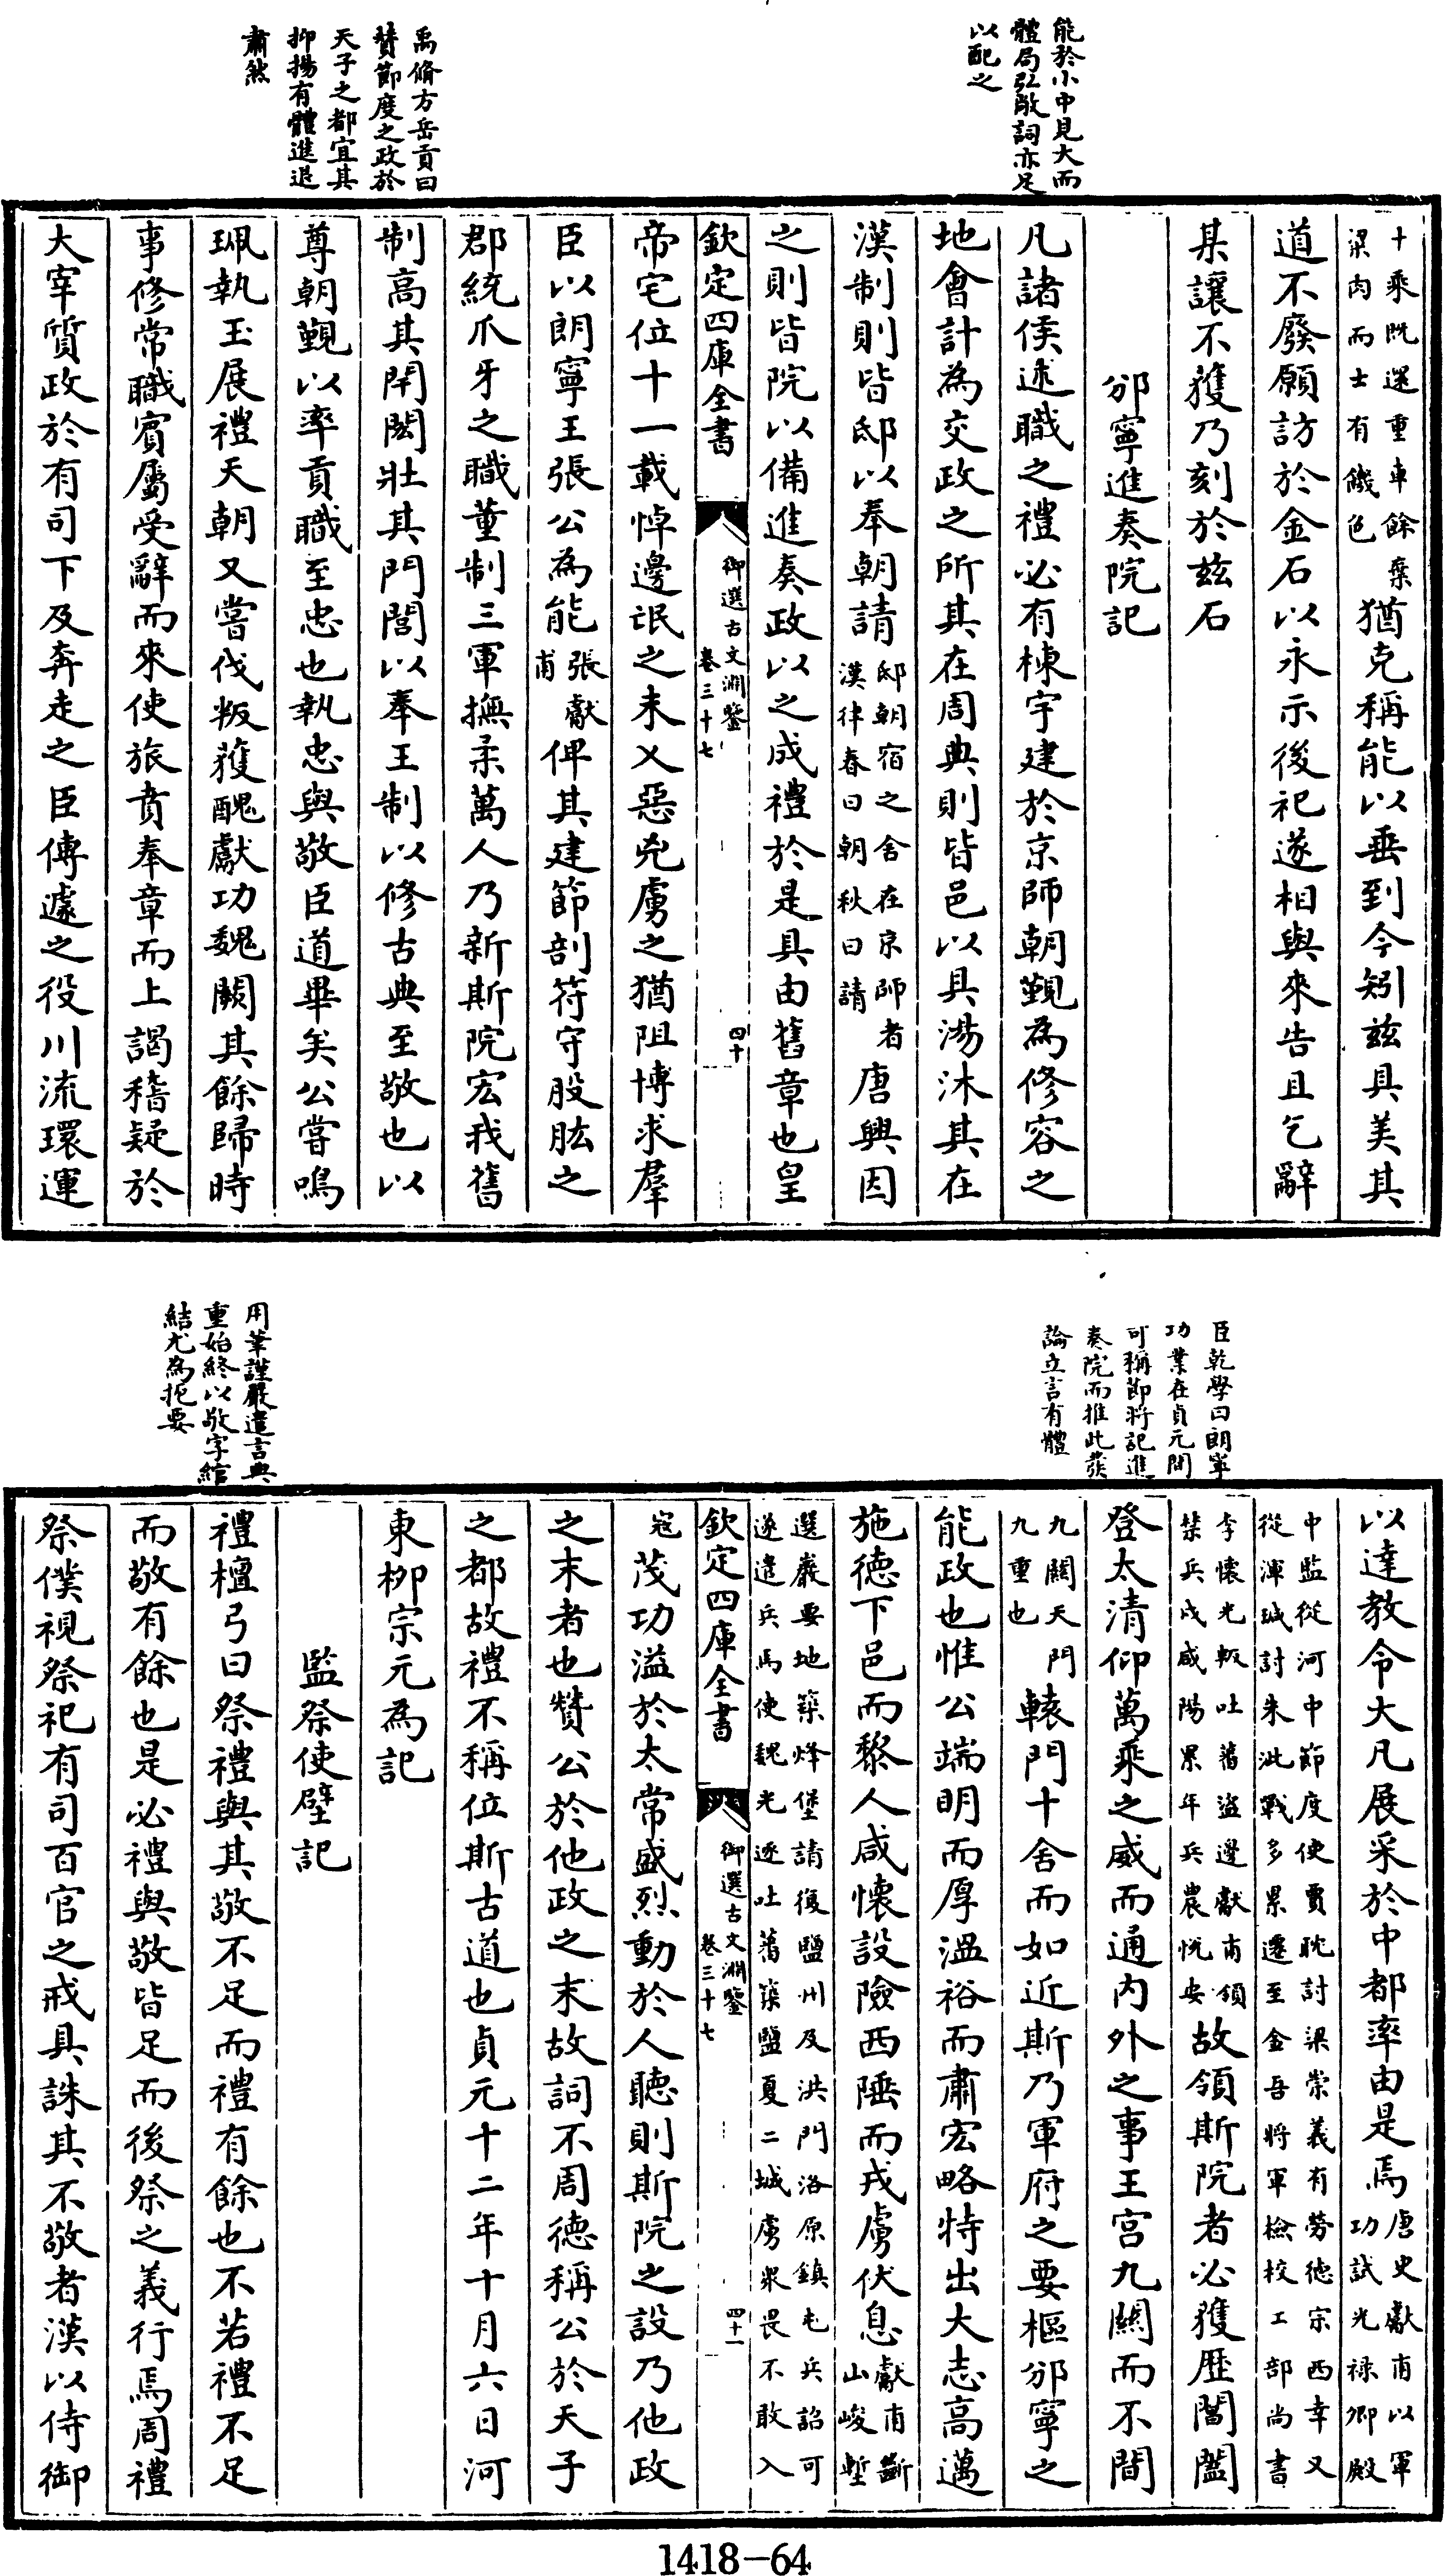 能於小中見大而
體局弘敞詞亦足
以配之
禹脩方岳貢曰
贊節度之政於
天子之都宜其
抑揚有體進退
肅然
十乘既選重車餘棄
梁肉而士有饑色
猶克稱能以垂到今矧兹具美其
道不廢願訪於金石以永示後祀遂相與來告且乞辭
某讓不獲乃刻於兹石
邠寧進奏院記
凡諸侯述職之禮必有棟宇建於京師朝覲為修容之
地會計為交政之所其在周典則皆邑以具湯沐其在
漢制則皆邸以奉朝請
邸朝宿之舍在京師者
漢律春曰朝秋曰請
唐興因
之則皆院以備進奏政以之成禮於是具由舊章也皇
欽定四庫全書
御選古文淵鑒
卷三十七
四十
帝宅位十一載悼邊氓之未乂惡兇虜之猶阻博求羣
臣以朗寧王張公為能
張獻
甫
俾其建節剖符守股肱之
郡統爪牙之職董制三軍撫柔萬人乃新斯院宏我舊
制高其閈閎壯其門閭以奉王制以修古典至敬也以
尊朝覲以率貢職至忠也執忠與敬臣道畢矣公嘗鳴
珮執玉展禮天朝又嘗伐叛獲醜獻功魏闕其餘歸時
事修常職賓屬受辭而來使旅賁奉章而上謁稽疑於
大宰質政於有司下及奔走之臣傳遽之役川流環運
臣乾學曰朗寧
功業在貞元間
可稱節將記進
奏院而推此發
論立言有體
用筆謹嚴遣言典
重始終以敬字綰
結尤為扼要
以達教令大凡展采於中都率由是焉
唐史獻甫以軍
功試光禄卿殿
中監從河中節度使賈耽討梁崇義有勞德宗西幸又
從渾瑊討朱泚戰多累遷至金吾將軍檢校工部尚書
李懷光叛吐蕃盜邊獻甫領
禁兵戍咸陽累年兵農悦安
故領斯院者必獲歷閶闔
登太清仰萬乘之威而通内外之事王宫九關而不間
九關天門
九重也
轅門十舍而如近斯乃軍府之要樞邠寧之
能政也惟公端明而厚溫裕而肅宏略特出大志高邁
施德下邑而黎人咸懷設險西陲而戎虜伏息
獻甫斷
山峻塹
選嚴要地築烽堡請復鹽州及洪門洛原鎮屯兵詔可
遂遣兵馬使魏光逐吐蕃築鹽夏二城虜衆畏不敢入
欽定四庫全書
御選古文淵鑒
卷三十七
四十一
寇
茂功溢於太常盛烈動於人聽則斯院之設乃他政
之末者也贊公於他政之末故詞不周德稱公於天子
之都故禮不稱位斯古道也貞元十二年十月六日河
東柳宗元為記
監祭使壁記
禮檀弓曰祭禮與其敬不足而禮有餘也不若禮不足
而敬有餘也是必禮與敬皆足而後祭之義行焉周禮
祭僕視祭祀有司百官之戒具誅其不敬者漢以侍御
1418—64